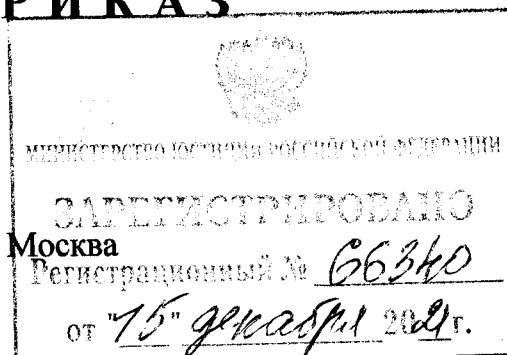 РИКАЗ
МИНИСТЕРСТВО ЮСТИЦИИ РОССИЙСКОЙ ФЕДЕРАЦИИ
ЗАРЕГИСТРИРОВАНО
Москва
Регистрационный № 66340
от "15" декабря 2021г.